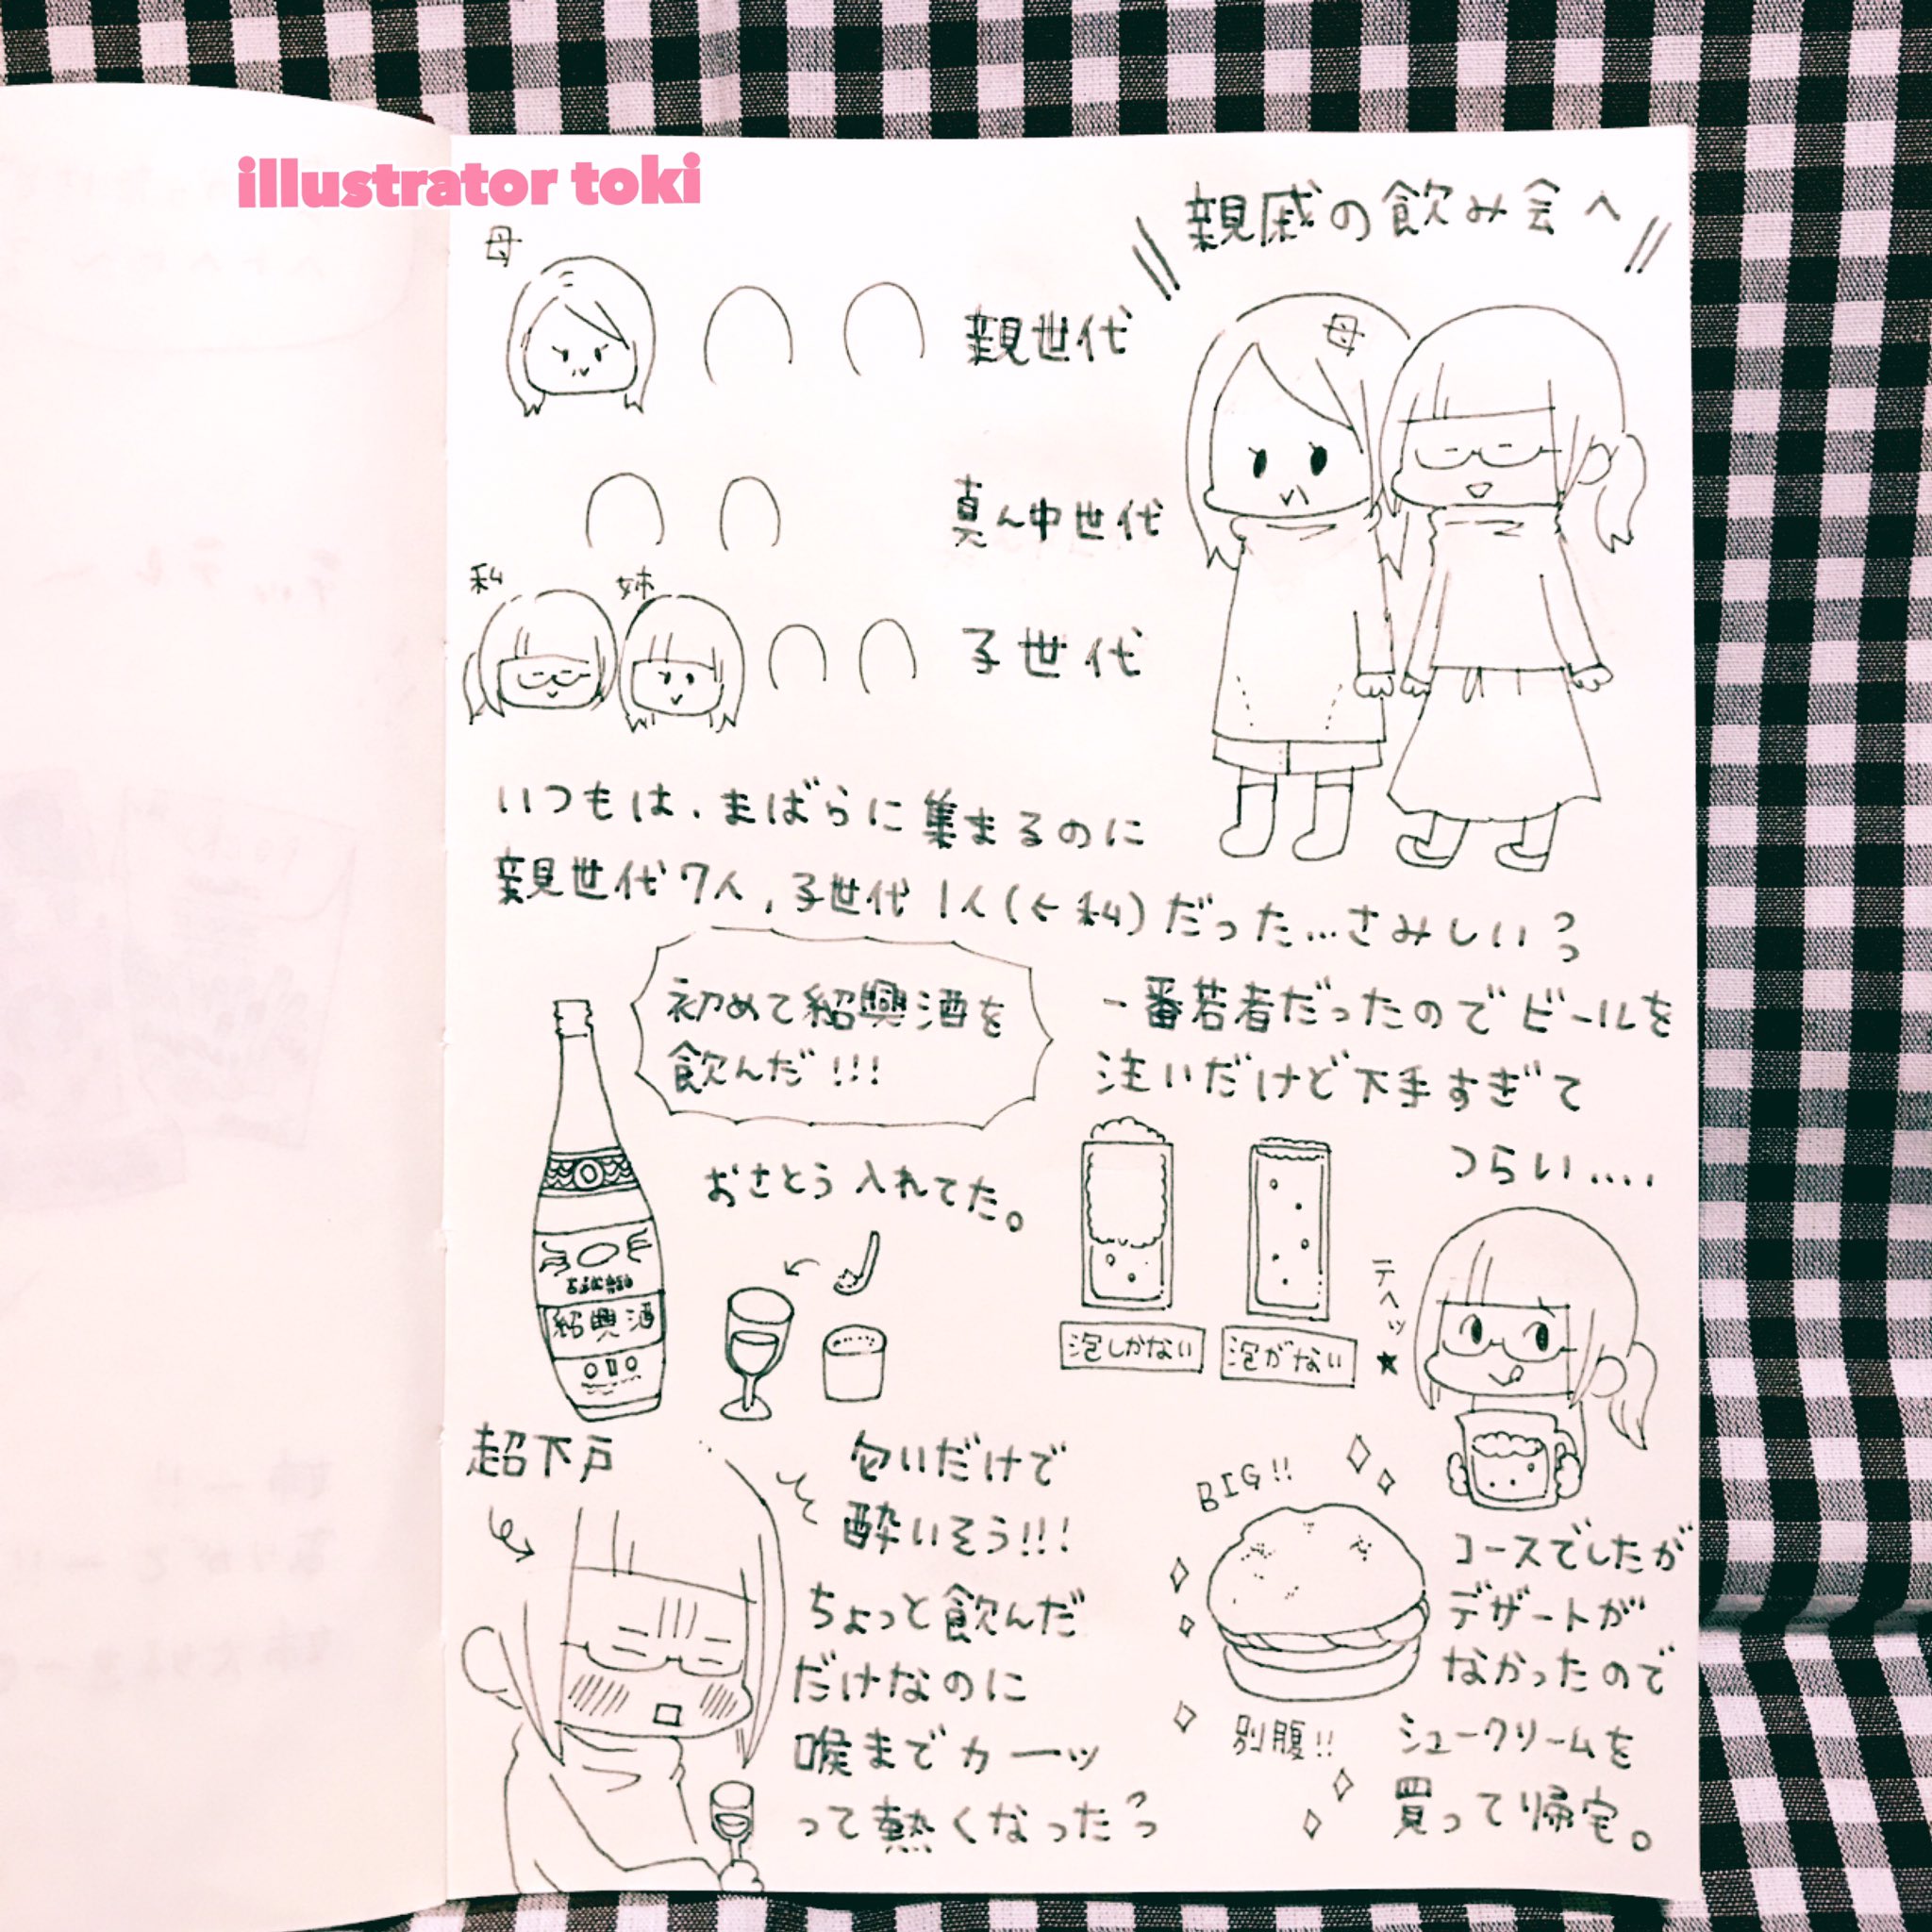 illustrator toki
親戚の飲み会へ
母
親世代
母
真ん中世代
私
姉
子世代
いつもは、まばらに集まるのに
親世代7人、子世代1人(←私)だった…さみしい
初めて紹興酒を
飲んだ!!!
おさとう入れてた。
紹興酒
一番若者だったのでビールを
注いだけど下手すぎて
つらい....
泡しかない
泡がない
テヘッ★
超下戸
匂いだけで
酔いそう!!!
ちょっと飲んだ
だけなのに
喉までカーッ
って熱くなった
BIG!!
別腹!!
コースでしたが
デザートが
なかったので
シュークリームを
買って帰宅。